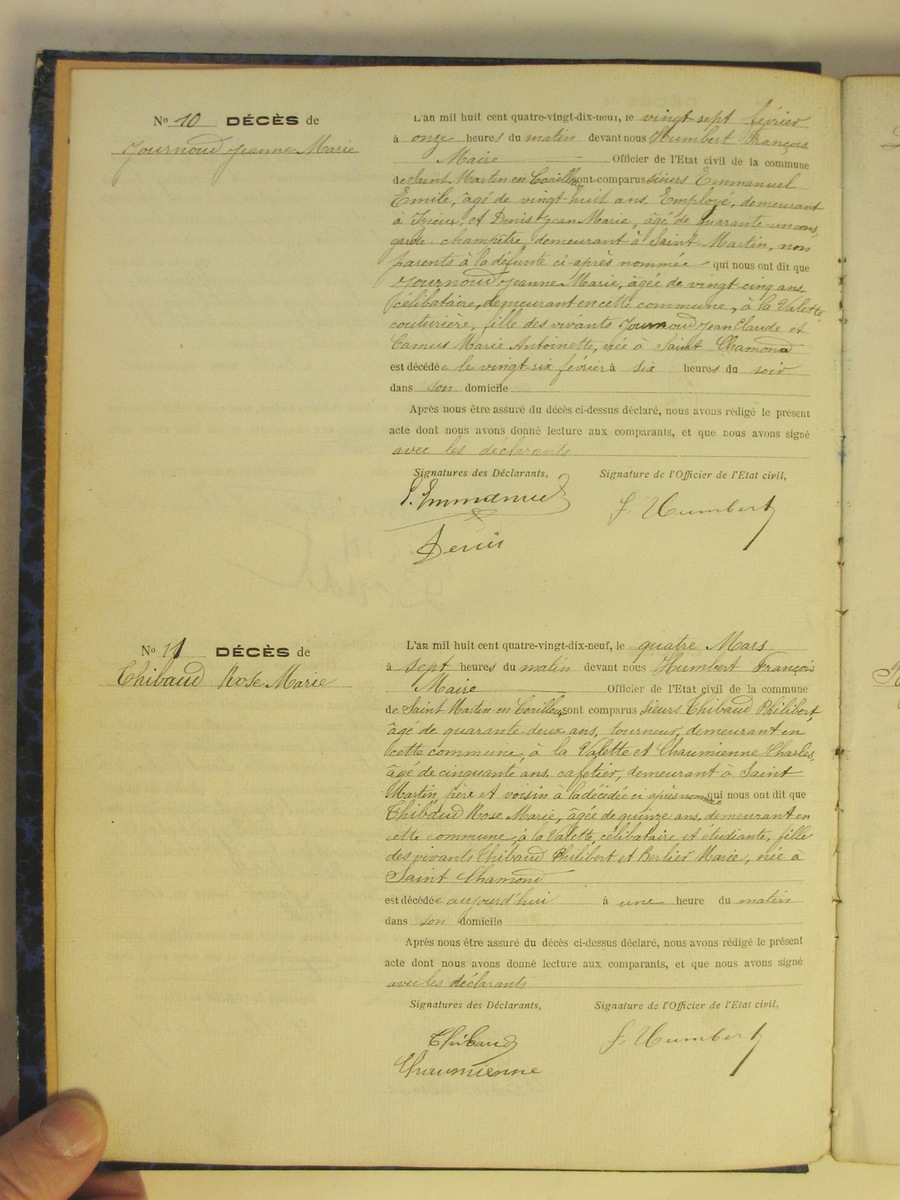 No 10 DÉCÈS de
Journoud Jeanne Marie
L'an mil huit cent quatre-vingt-dix-neuf, le vingt sept février
à onze heures du matin devant nous Humbert François
Maire Officier de l'Etat civil de la commune
de Saint Martin-en-Coailleux sont comparus sieurs Emmanuel
Emile, âgé de vingt huit ans, Employé, demeurant
à Izieux, et Denis Jean Marie, âgé de quarante-un ans,
garde-champêtre, demeurant à Saint-Martin, non
parents à la défunte ci-après nommée qui nous ont dit que
Journoud Jeanne Marie, âgée de vingt-cinq ans
célibataire, demeurant en cette commune, à la Valette
couturière, fille des vivants Journoud Jean Claude et
Camus Marie Antoinette, née à Saint Chamond
est décédée le vingt-six février à six heures du soir
dans son domicile
Après nous être assuré du décès ci-dessus déclaré, nous avons rédigé le présent
acte dont nous avons donné lecture aux comparants, et que nous avons signé
avec les déclarants
Signatures des Déclarants, Signature de l'Officier de l'Etat civil,
E. Emmanuel
F. Humbert
Denis
No 11 DÉCÈS de
Thibaud Rose Marie
L'an mil huit cent quatre-vingt-dix-neuf, le quatre Mars
à sept heures du matin devant nous Humbert François
Maire Officier de l'Etat civil de la commune
de Saint Martin-en-Coailleux sont comparus sieurs Thibaud Philibert,
âgé de quarante-deux ans, tourneur, demeurant en
cette commune, à la Valette et Chaumienne Charles,
âgé de cinquante ans, cafetier, demeurant à Saint
Martin, père et voisin à la décédée ci après nommée qui nous ont dit que
Thibaud Rose Marie, âgée de quinze ans, demeurant en
cette commune, à la Valette, célibataire et étudiante, fille
des vivants Thibaud Philibert et Berlier Marie, née à
Saint Chamond
est décédée aujourd'hui à une heure du matin
dans son domicile
Après nous être assuré du décès ci-dessus déclaré, nous avons rédigé le présent
acte dont nous avons donné lecture aux comparants, et que nous avons signé
avec les déclarants
Signatures des Déclarants, Signature de l'Officier de l'Etat civil,
Thibaud
F. Humbert
Chaumienne